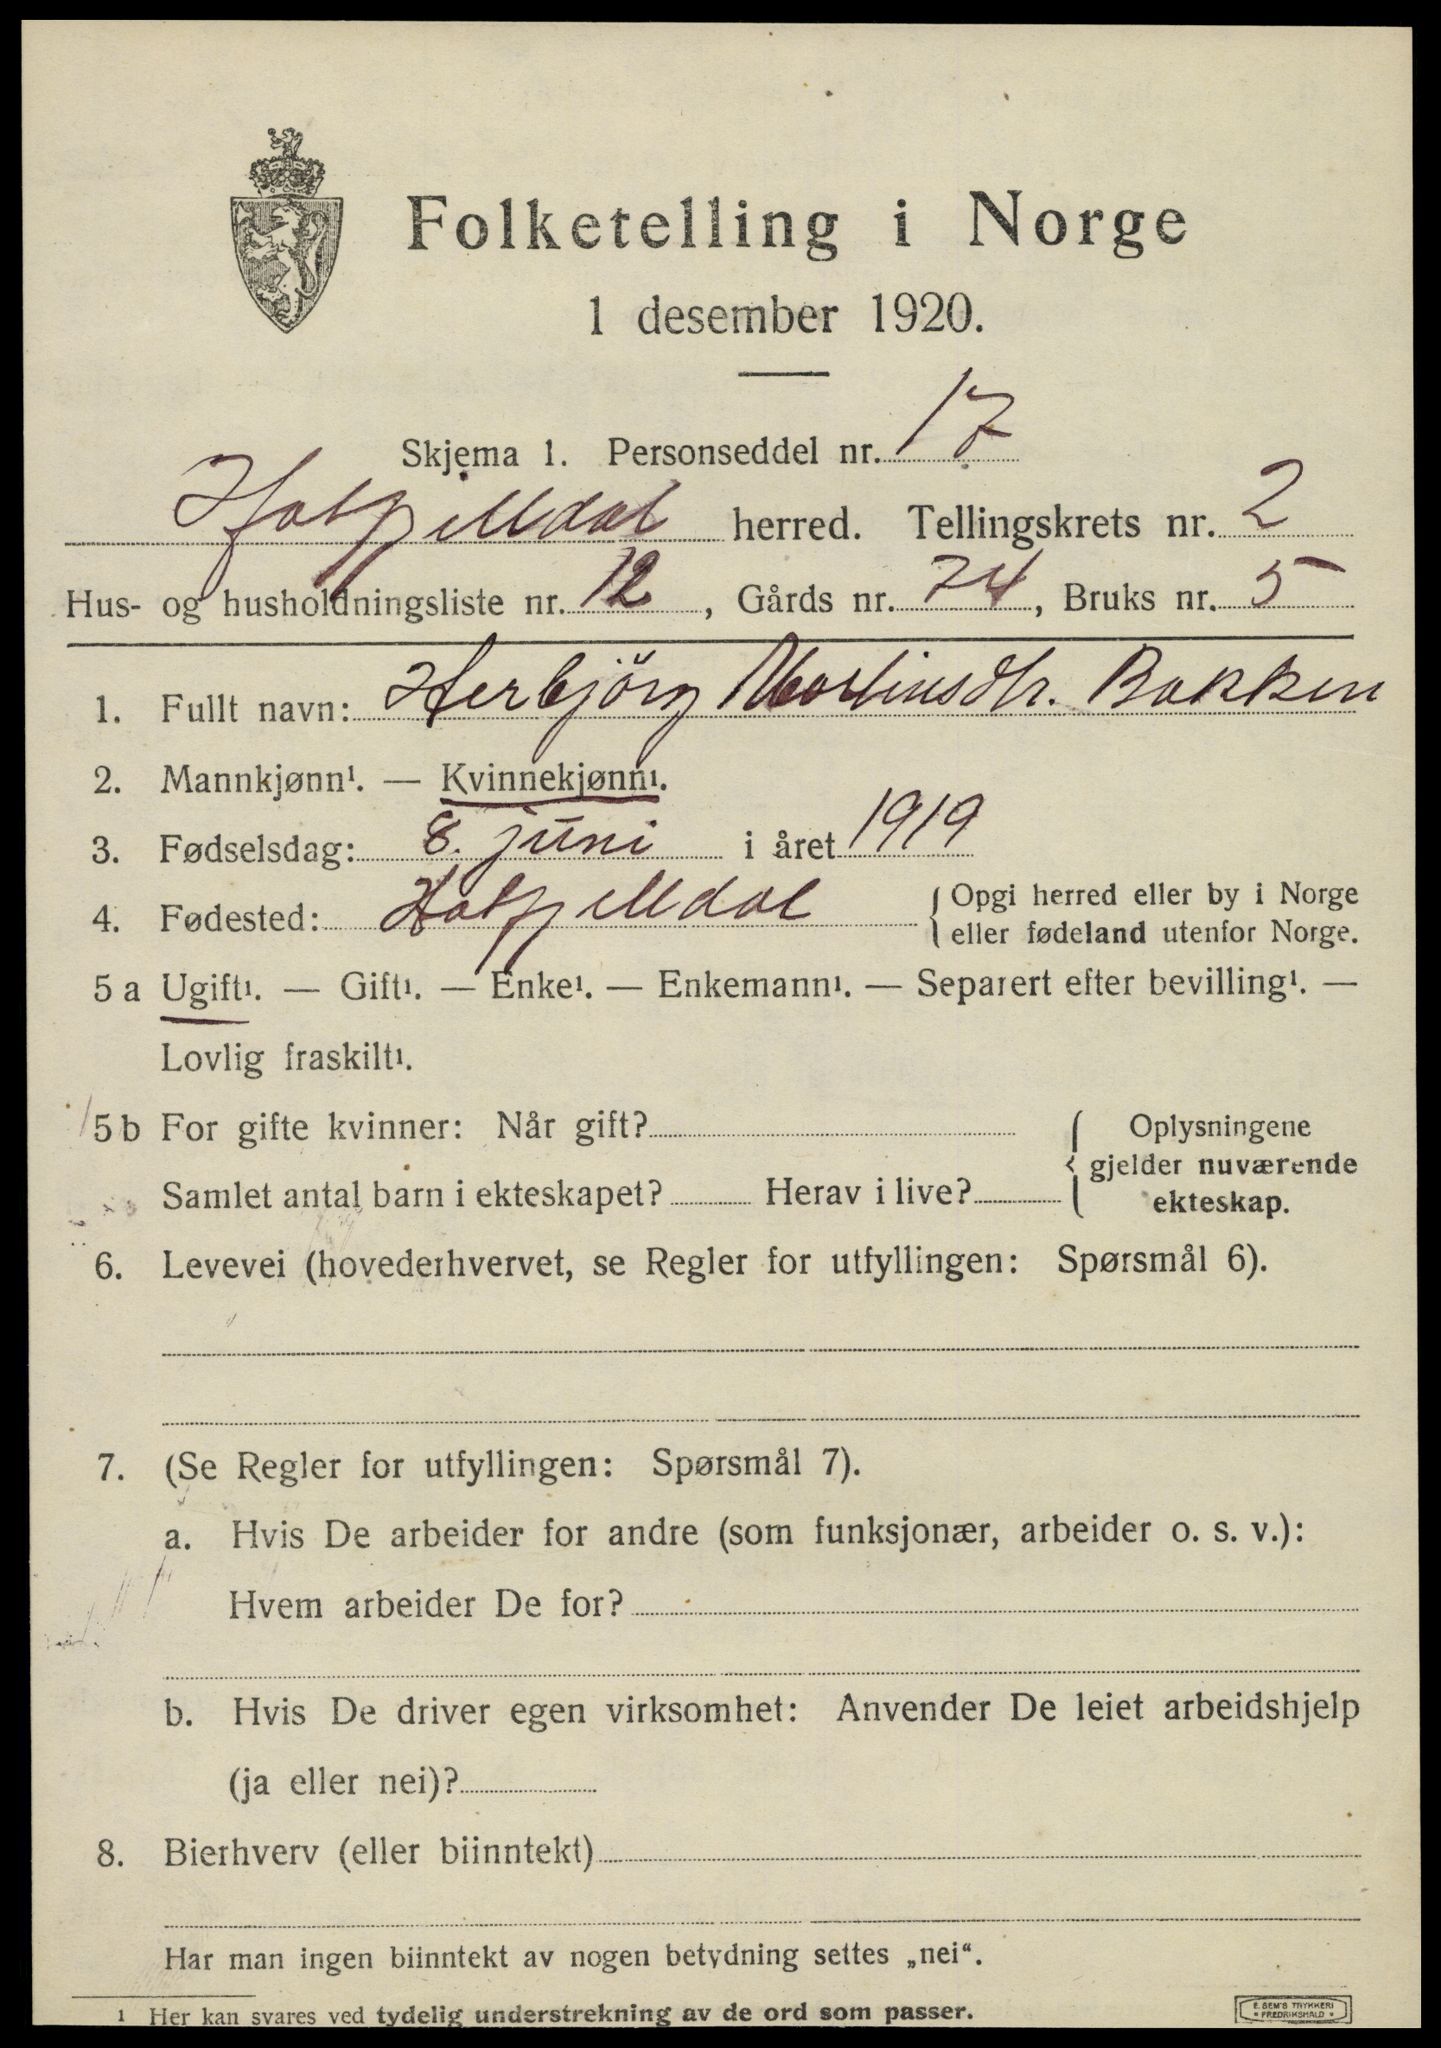 Folketelling i Norge
1 desember 1920.
Skjema 1. Personseddel nr. 17
Hatfjelldal herred. Tellingskrets nr. 2
Hus- og husholdningsliste nr. 12, Gårds nr. 74, Bruks nr. 5
1. Fullt navn: Herbjörg Martinsdtr. Bakken
2. Mannkjønn¹. — Kvinnekjønn¹.
3. Fødselsdag: 8. juni i året 1919
4. Fødested: Hatfjelldal { Opgi herred eller by i Norge
eller fødeland utenfor Norge.
5 a Ugift¹. — Gift¹. — Enke¹. — Enkemann¹. — Separert efter bevilling¹. —
Lovlig fraskilt¹.
5 b For gifte kvinner: Når gift? { Oplysningene
gjelder nuværende
Samlet antal barn i ekteskapet? Herav i live? ekteskap.
6. Levevei (hovederhvervet, se Regler for utfyllingen: Spørsmål 6).
7. (Se Regler for utfyllingen: Spørsmål 7).
a. Hvis De arbeider for andre (som funksjonær, arbeider o. s. v.):
Hvem arbeider De for?
b. Hvis De driver egen virksomhet: Anvender De leiet arbeidshjelp
(ja eller nei)?
8. Bierhverv (eller biinntekt)
Har man ingen biinntekt av nogen betydning settes „nei“.
¹ Her kan svares ved tydelig understrekning av de ord som passer.
E. SEM'S TRYKKERI
FREDRIKSHALD